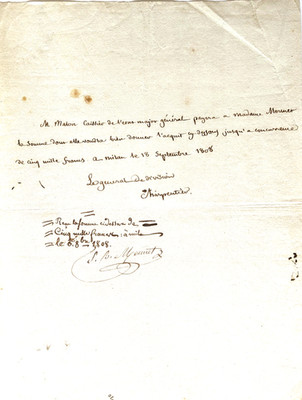 M Melon Caissier de l'etat major général payera a madame Monnet
la somme dont elle voudra bien donner l'acquit cy dessous jusqu'a concurrence
de cinq mille francs a milan le 18 Septembre 1808
Le general de division
Charpentier
Reçu la somme ci dessus de
Cinq mille francs à milan
le 1808.
Monnet